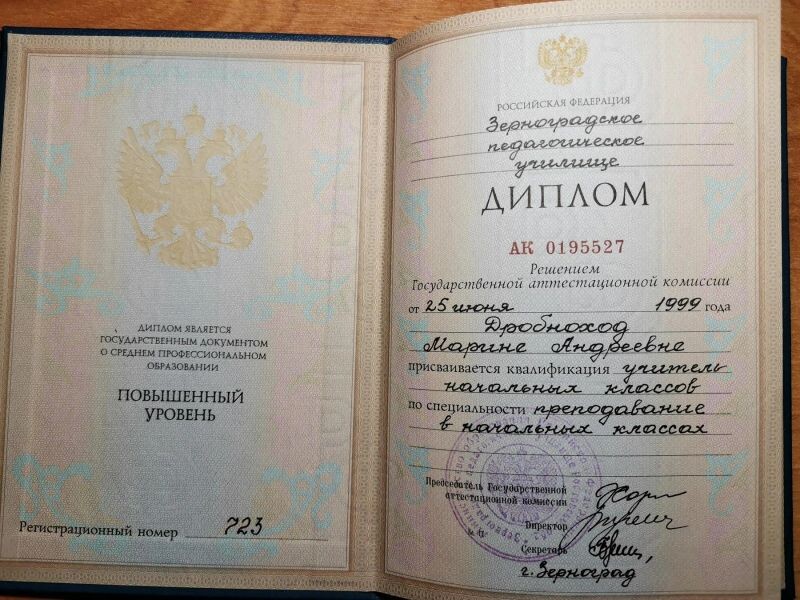 ДИПЛОМ ЯВЛЯЕТСЯ
ГОСУДАРСТВЕННЫМ ДОКУМЕНТОМ
О СРЕДНЕМ ПРОФЕССИОНАЛЬНОМ
ОБРАЗОВАНИИ
ПОВЫШЕННЫЙ
УРОВЕНЬ
Регистрационный номер 723
РОССИЙСКАЯ ФЕДЕРАЦИЯ
Зерноградское
педагогическое
училище
ДИПЛОМ
АК 0195527
Решением
Государственной аттестационной комиссии
от 25 июня 1999 года
Дробноход
Марине Андреевне
присваивается квалификация учитель
начальных классов
по специальности преподавание
в начальных классах
Председатель Государственной
аттестационной комиссии
Директор
Секретарь
г. Зерноград